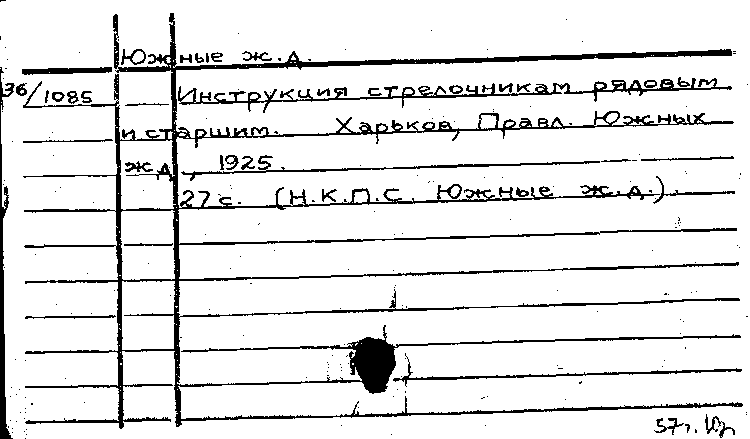 Южные ж.д.
36/1085 Инструкция стрелочникам рядовым
и старшим. Харьков, Правл. Южных
ж.д., 1925.
27 с. (Н.К.П.С. Южные ж.д.).
57г.